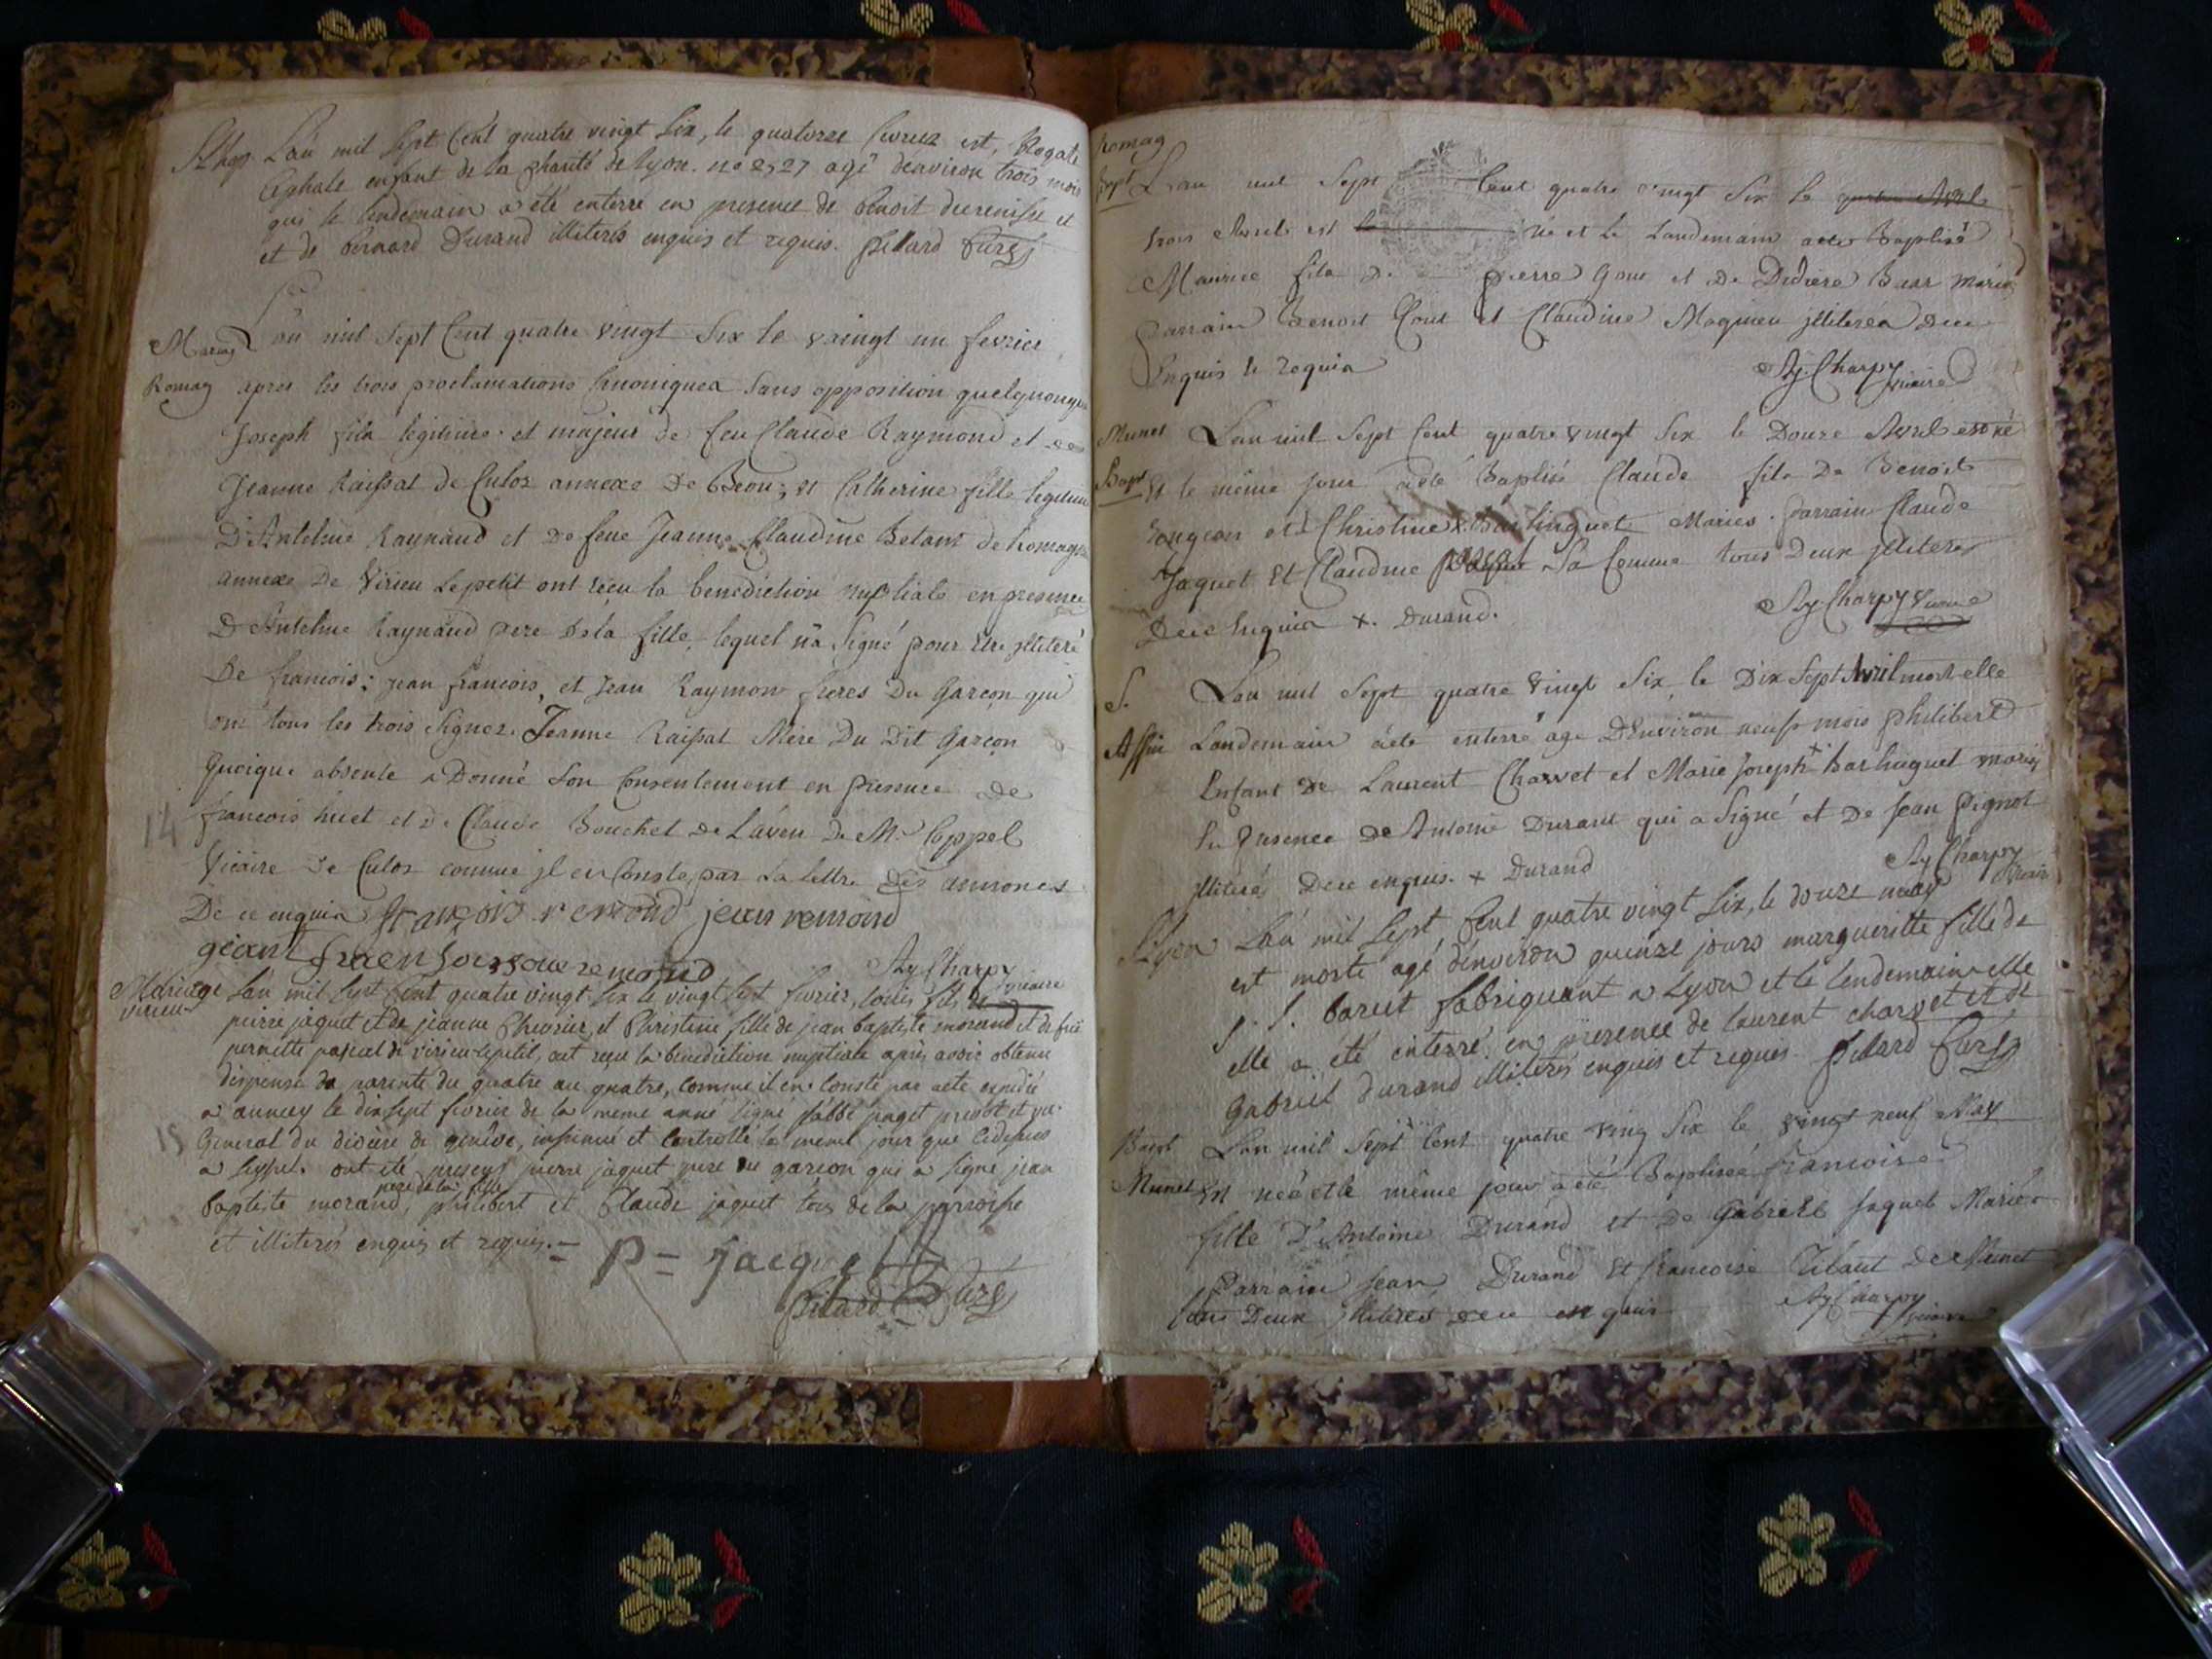 L'an mil sept cent quatre vingt six, le quatorze fevrier est, 
Cephale enfant de la charité de lyon. no 2527 agé denviron trois mois
qui le lendemain a été enterré en presence de benoit et
et de bernard Durand illiterés enquis et requis. pillard Curé
Mariag L'an mil sept Cent quatre vingt Six le vaingt un fevrier
Romag apres les trois proclamations Cánoniques sans opposition quelquonque
Joseph fils legitime et majeur de feu Claude Raymond et de
Jeanne Raissat de Culoz annexe De Béon, et Catherine fille legitime
D'Antelme Raynaud et De feue Jeanne Claudine Betant de Romagn
annexe De Virieu Lepetit ont reçu la benediction nuptiale en presence
D'Antelme Raynaud pere Dela fille, lequel n'a Signé pour être jlliteré
De francois, jean francois, et Jean Raymon freres Du Garçon qui
ont tous les trois Signez. Jeanne Raissat Mere Du Dit Garçon
Quoique absente a Donné Son Consentement en presence De
14 francois huet et De Claude Bouchet De L'aveu De Mr Coppel
Vicaire De Culoz comme jl en Conste par La lettre Des annonces
De ce enquis françois remond jean remond
remond
Ay Charpy vicaire
Mariage L'an mil sept Cent quatre vingt six le vingt sept fevrier, louis fils de
virieu pierre jaquet et de jeanne Chevrier, et Christine fille de jean baptiste morand et de feüe
pernette pascal de virieu-lepetit, ont reçu la benediction nuptiale après avoir obtenu
dispense de parenté du quatre au quatre, comme il en Conste par acte expedié
a annecy le dix sept fevrier de la meme année signé l'abbé puget prevôt et vic.
15 General du diocèse de genêve, insinué et Controllé le meme jour que cidessus
a Seyssel. ont été presens pierre jaquet pere du garçon qui a signé jean
pere de la fille
baptiste morand, philibert et Claude jaquet tous de la paroisse
et illiterés enquis et requis. = P = Jacquet
pillard Curé
Romag
Bapt L'an mil Sept Cent quatre vingt Six le quatre Avril
trois Avril est né et le Landemain a été Baptisé
Maurice fils De pierre Gour et De Didiere Baar Mariés
Parrain Benoit Gour et Claudine Magnien jlliterés Dece
Enquis et Requis
Ay. Charpy vicaire
Munet L'an mil Sept Cent quatre vingt Six le Douze Avril est né
Bapt Et le même jour a été Baptisé Claude fils De Benoit
et Christine Barlinguet Mariés. Parrain Claude
Jaquet Et Claudine pascal Sa femme tous Deux jlliterés
Dece Enquis +. Durand.
Ay. Charpy Vicaire
S. L'an mil Sept quatre Vingt Six, le Dix Sept Avril mort elle
Assin Landemain a été enterré agé D'Environ neuf mois philibert
Enfant De Laurent Charvet et Marie Joseph + Barlinguet mariés
En Presence De Antoine Durant qui a Signé et De Jean Pignot
jlliterés Dece enquis. + Durand
Ay Charpy Vicair
Lyon L'an mil sept Cent quatre vingt six, le douze may
est morte agé d'environ quinze jours margueritte fille de
S. J. baret fabriquant a Lyon et le lendemain elle
elle a été enterré en presence de laurent charvet et de
Gabriel durand illiterés enquis et requis. pillard Curé
Bapt L'an mil Sept Cent quatre ving Six le vingt neuf May
Munet Est née et le même jour a été Baptisée francoise
fille D'Antoine Durand et De Gabriele Jaquet Mariés
Parrain Jean Durand Et francoise Tibaut De Munet
tous Deux jlliterés Dece enquis
Ay Charpy vicaire